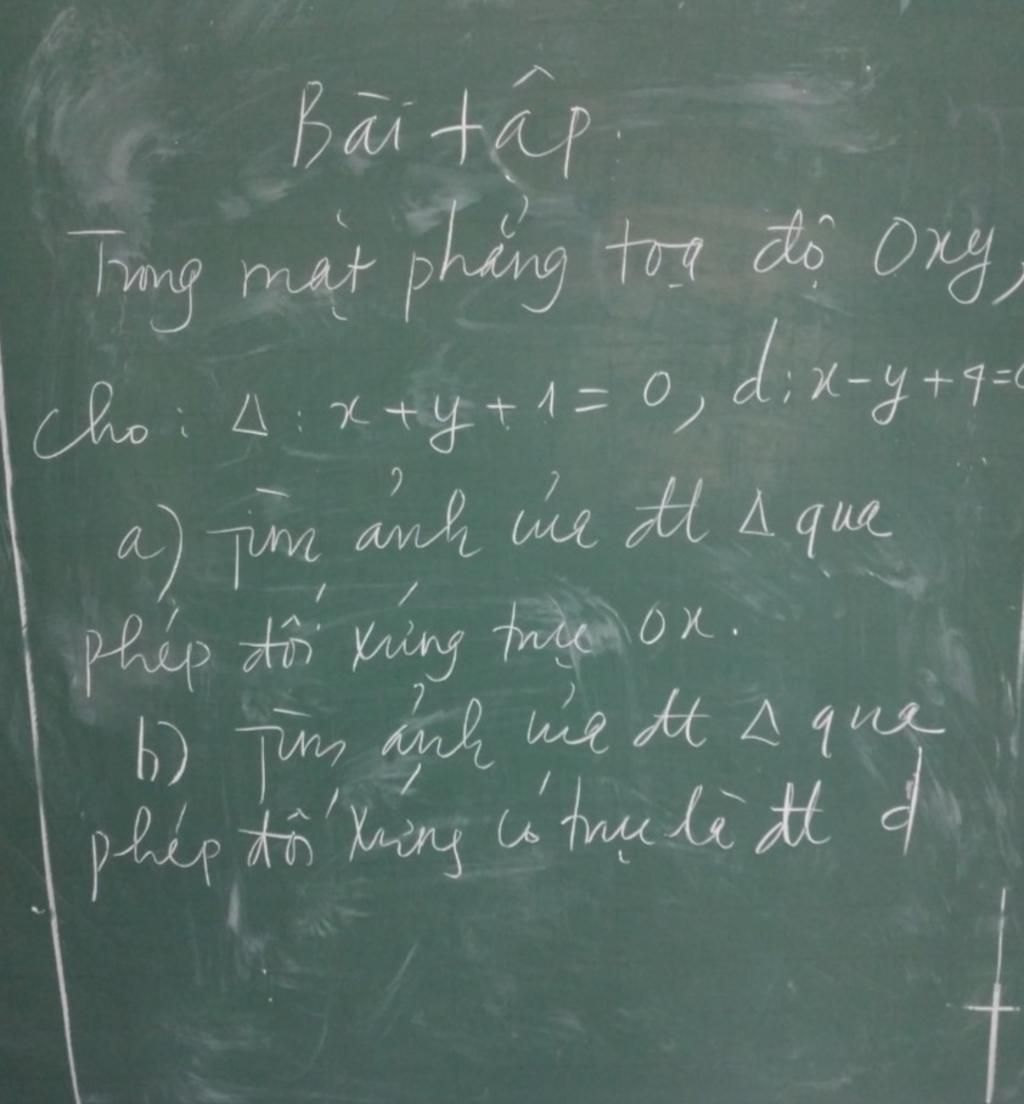 Bài tập.
Trong mặt phẳng toạ độ Oxy,
cho: Δ: x+y+1=0, d: x-y+4=0
a) Tìm ảnh của đt Δ qua
phép đối xứng trục Ox.
b) Tìm ảnh của đt Δ qua
phép đối xứng có trục là đt d